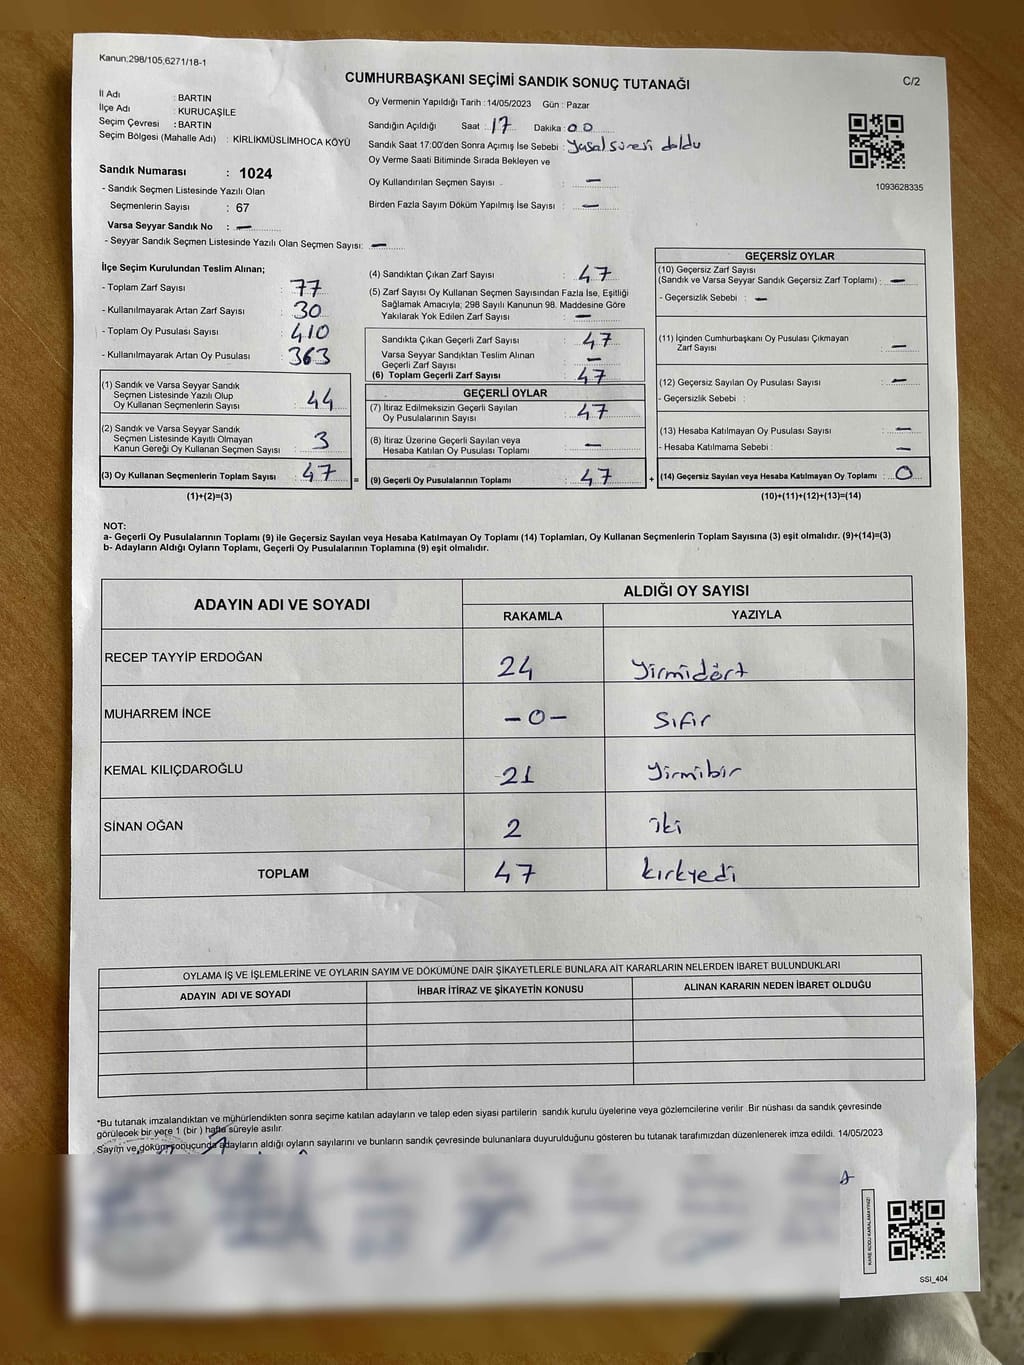 Kanun;298/105,6271/18-1
CUMHURBAŞKANI SEÇİMİ SANDIK SONUÇ TUTANAĞI
C/2
İl Adı : BARTIN
İlçe Adı : KURUCAŞİLE
Seçim Çevresi : BARTIN
Seçim Bölgesi (Mahalle Adı) : KİRLİKMÜSLİMHOCA KÖYÜ
Oy Vermenin Yapıldığı Tarih : 14/05/2023 Gün : Pazar
Sandığın Açıldığı Saat : 17 Dakika : 00
Sandık Saat 17:00'den Sonra Açımış İse Sebebi : Yasal süresi doldu
Oy Verme Saati Bitiminde Sırada Bekleyen ve
Oy Kullandırılan Seçmen Sayısı : —
Birden Fazla Sayım Döküm Yapılmış İse Sayısı : —
1093628335
Sandık Numarası : 1024
- Sandık Seçmen Listesinde Yazılı Olan
Seçmenlerin Sayısı : 67
Varsa Seyyar Sandık No : —
- Seyyar Sandık Seçmen Listesinde Yazılı Olan Seçmen Sayısı: —
İlçe Seçim Kurulundan Teslim Alınan;
- Toplam Zarf Sayısı : 77
- Kullanılmayarak Artan Zarf Sayısı : 30
- Toplam Oy Pusulası Sayısı : 410
- Kullanılmayarak Artan Oy Pusulası : 363
(1) Sandık ve Varsa Seyyar Sandık
Seçmen Listesinde Yazılı Olup
Oy Kullanan Seçmenlerin Sayısı : 44
(2) Sandık ve Varsa Seyyar Sandık
Seçmen Listesinde Kayıtlı Olmayan
Kanun Gereği Oy Kullanan Seçmen Sayısı : 3
(3) Oy Kullanan Seçmenlerin Toplam Sayısı : 47
(1)+(2)=(3)
(4) Sandıktan Çıkan Zarf Sayısı : 47
(5) Zarf Sayısı Oy Kullanan Seçmen Sayısından Fazla İse, Eşitliği
Sağlamak Amacıyla; 298 Sayılı Kanunun 98. Maddesine Göre
Yakılarak Yok Edilen Zarf Sayısı : —
Sandıkta Çıkan Geçerli Zarf Sayısı : 47
Varsa Seyyar Sandıktan Teslim Alınan
Geçerli Zarf Sayısı : —
(6) Toplam Geçerli Zarf Sayısı : 47
GEÇERLİ OYLAR
(7) İtiraz Edilmeksizin Geçerli Sayılan
Oy Pusulalarının Sayısı : 47
(8) İtiraz Üzerine Geçerli Sayılan veya
Hesaba Katılan Oy Pusulası Toplamı : —
= (9) Geçerli Oy Pusulalarının Toplamı : 47
GEÇERSİZ OYLAR
(10) Geçersiz Zarf Sayısı
(Sandık ve Varsa Seyyar Sandık Geçersiz Zarf Toplamı) : —
- Geçersizlik Sebebi : —
(11) İçinden Cumhurbaşkanı Oy Pusulası Çıkmayan
Zarf Sayısı : —
(12) Geçersiz Sayılan Oy Pusulası Sayısı : —
- Geçersizlik Sebebi :
(13) Hesaba Katılmayan Oy Pusulası Sayısı : —
- Hesaba Katılmama Sebebi : —
+ (14) Geçersiz Sayılan veya Hesaba Katılmayan Oy Toplamı : 0
(10)+(11)+(12)+(13)=(14)
NOT:
a- Geçerli Oy Pusulalarının Toplamı (9) ile Geçersiz Sayılan veya Hesaba Katılmayan Oy Toplamı (14) Toplamları, Oy Kullanan Seçmenlerin Toplam Sayısına (3) eşit olmalıdır. (9)+(14)=(3)
b- Adayların Aldığı Oyların Toplamı, Geçerli Oy Pusulalarının Toplamına (9) eşit olmalıdır.
ADAYIN ADI VE SOYADI
ALDIĞI OY SAYISI
RAKAMLA YAZIYLA
RECEP TAYYİP ERDOĞAN 24 Yirmidört
MUHARREM İNCE -0- Sıfır
KEMAL KILIÇDAROĞLU 21 Yirmibir
SİNAN OĞAN 2 iki
TOPLAM 47 kırkyedi
OYLAMA İŞ VE İŞLEMLERİNE VE OYLARIN SAYIM VE DÖKÜMÜNE DAİR ŞİKAYETLERLE BUNLARA AİT KARARLARIN NELERDEN İBARET BULUNDUKLARI
ADAYIN ADI VE SOYADI İHBAR İTİRAZ VE ŞİKAYETİN KONUSU ALINAN KARARIN NEDEN İBARET OLDUĞU
*Bu tutanak imzalandıktan ve mühürlendikten sonra seçime katılan adayların ve talep eden siyasi partilerin sandık kurulu üyelerine veya gözlemcilerine verilir .Bir nüshası da sandık çevresinde
görülecek bir yere 1 (bir ) hafta süreyle asılır.
Sayım ve döküm sonucunda adayların aldığı oyların sayılarını ve bunların sandık çevresinde bulunanlara duyurulduğunu gösteren bu tutanak tarafımızdan düzenlenerek imza edildi. 14/05/2023
KARE KODU KARALAMAYINIZ!
SSI_404